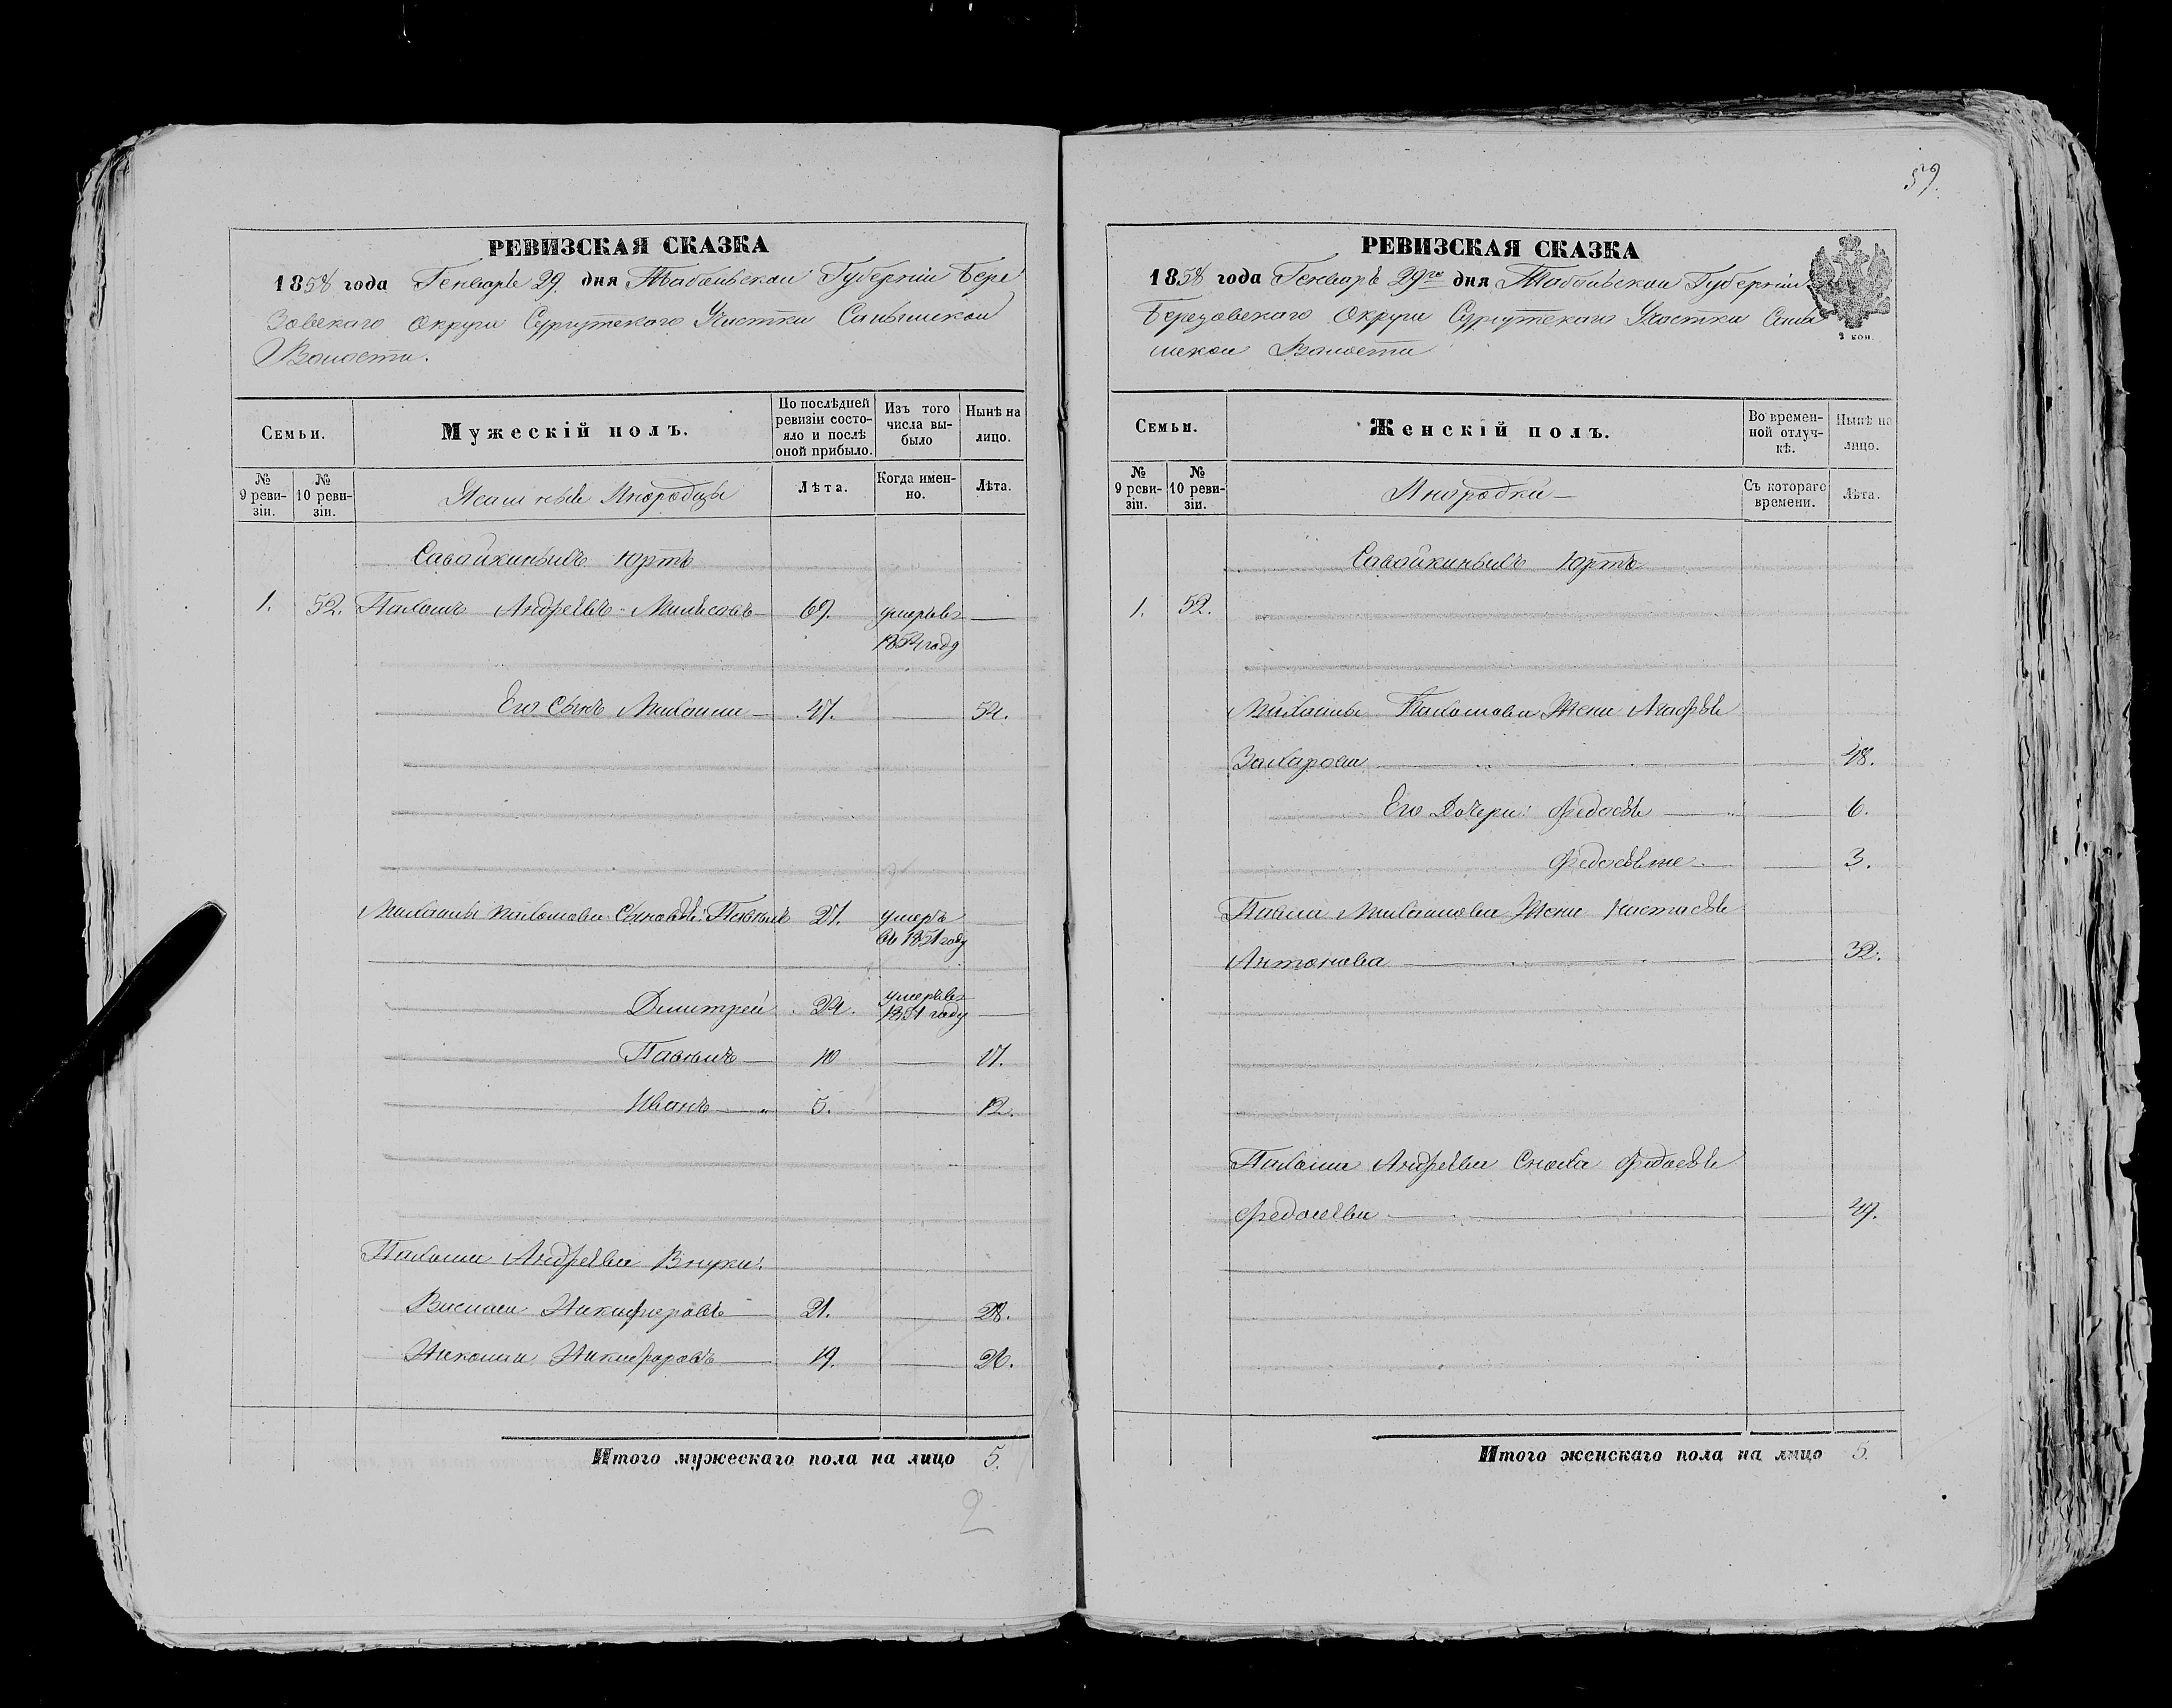 РЕВИЗСКАЯ СКАЗКА
1858 года Генваря 29 дня Тобольской Губерніи Бере
зовскаго Округа Сургутскаго Участка
Волости.
Семьи.
Мужескій полъ.
По послѣдней ревизіи состо-
яло и послѣ оной прибыло.
Изъ того числа вы-
было
Нынѣ на лицо.
№ 9 реви-
зіи.
№ 10 реви-
зіи.
Инородцы
Лѣта.
Когда имен-
но.
Лѣта.
Юртъ
1. 52. Пахомъ Андреевъ 69. умеръ въ —
1854 году
Его Сынъ — 47. — 54.
Пахомова Сыновья: 27. умеръ —
въ 1851 году
Дмитрей 24. умеръ въ —
1851 году
— 10 — 17.
Иванъ — 5. — 12.
Пахома Андреева Внуки:
Никифоровъ — 21. — 28.
Никифоровъ — 19. — 26.
Итого мужескаго пола на лицо 5.
2
59.
РЕВИЗСКАЯ СКАЗКА
1858 года Генваря 29го дня Тобольской Губерніи
Березовскаго Округа Сургутскаго Участка
Волости
2 коп.
Семьи.
Женскій полъ.
Во времен-
ной отлуч-
кѣ.
Нынѣ на лицо.
№ 9 реви-
зіи.
№ 10 реви-
зіи.
Инородки —
Съ котораго времени.
Лѣта.
Юртъ
1. 52.
Пахомова Жена
Захарова — — 48.
Его Дочери: Федосья — — 6.
— — 3.
Жена Настасья
Антонова — — 32.
Пахома Андреева Сноха Федосья
— — 49.
Итого женскаго пола на лицо 5.